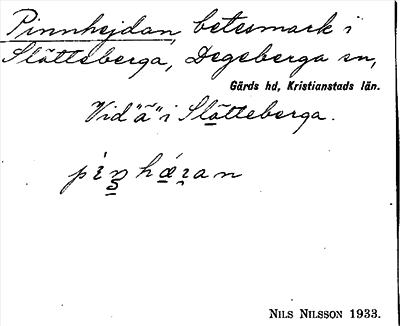 Pinnhejdan, betesmark i
Slätteberga, Degeberga sn,
Gärds hd, Kristianstads län.
Vid "ä" i Slätteberga.
NILS NILSSON 1933.